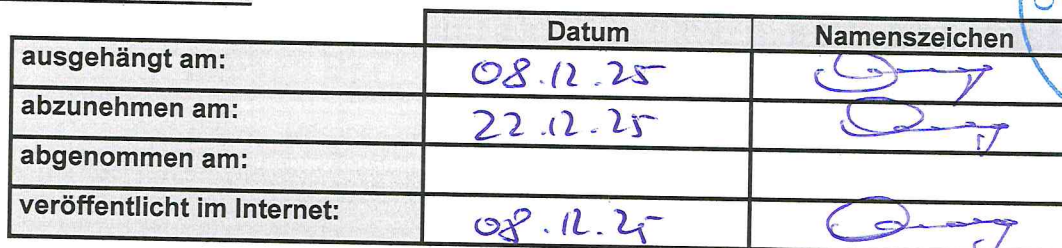 Datum Namenszeichen
ausgehängt am: 08.12.25
abzunehmen am: 22.12.25
abgenommen am:
veröffentlicht im Internet: 08.12.25